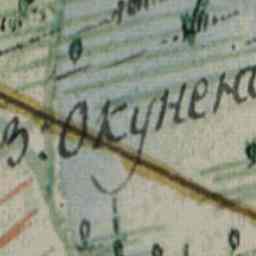 з: Окунена